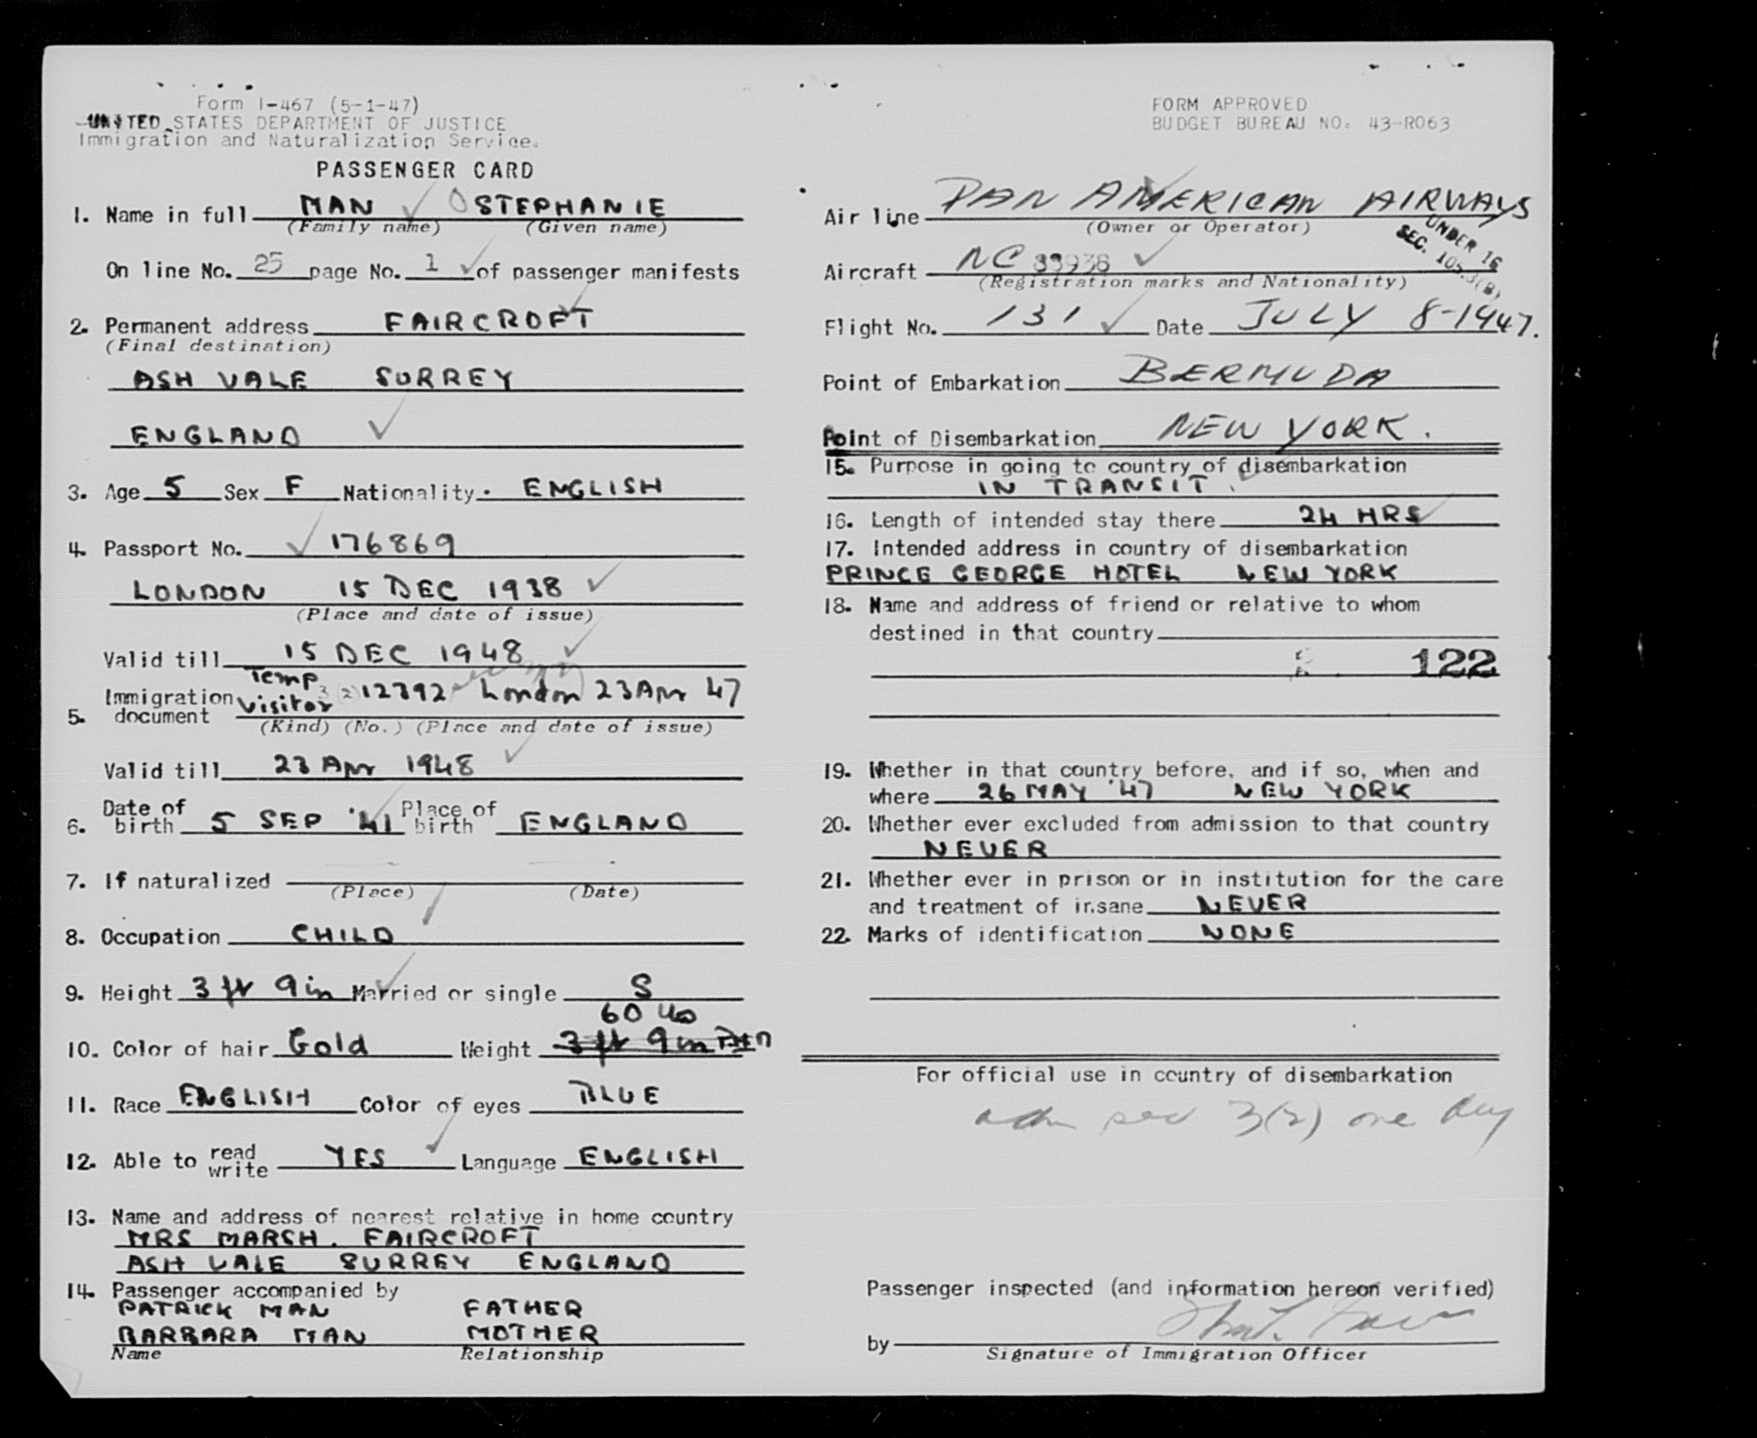 Form I-467 (5-1-47)
UNITED STATES DEPARTMENT OF JUSTICE
Immigration and Naturalization Service.
PASSENGER CARD
1. Name in full MAN STEPHANIE
(Family name) (Given name)
On line No. 25 page No. 1 of passenger manifests
2. Permanent address FAIRCROFT
(Final destination)
ASH VALE SURREY
ENGLAND
3. Age 5 Sex F Nationality. ENGLISH
4. Passport No. 176869
LONDON 15 DEC 1938
(Place and date of issue)
Valid till 15 DEC 1948
5. Immigration document Temp Visitor 3(2) 12792 London 23 Apr 47
(Kind) (No.) (Place and date of issue)
Valid till 23 Apr 1948
6. Date of birth 5 SEP '41 Place of birth ENGLAND
7. If naturalized
(Place) (Date)
8. Occupation CHILD
9. Height 3 ft 9 in Married or single S
60 lbs
10. Color of hair Gold Weight 3 ft 9 in
11. Race ENGLISH Color of eyes BLUE
12. Able to read write YES Language ENGLISH
13. Name and address of nearest relative in home country
MRS MARSH. FAIRCROFT
ASH VALE SURREY ENGLAND
14. Passenger accompanied by
PATRICK MAN FATHER
BARBARA MAN MOTHER
Name Relationship
FORM APPROVED
BUDGET BUREAU NO. 43-R063
Air line PAN AMERICAN AIRWAYS
(Owner or Operator)
UNDER 16
SEC. 105.3(B)
Aircraft NC 88938
(Registration marks and Nationality)
Flight No. 131 Date JULY 8-1947.
Point of Embarkation BERMUDA
Point of Disembarkation NEW YORK.
15. Purpose in going to country of disembarkation
IN TRANSIT.
16. Length of intended stay there 24 HRS
17. Intended address in country of disembarkation
PRINCE GEORGE HOTEL NEW YORK
18. Name and address of friend or relative to whom
destined in that country
122
19. Whether in that country before, and if so, when and
where 26 MAY '47 NEW YORK
20. Whether ever excluded from admission to that country
NEVER
21. Whether ever in prison or in institution for the care
and treatment of insane NEVER
22. Marks of identification NONE
For official use in country of disembarkation
adm sec 3(2) one day
Passenger inspected (and information hereon verified)
by
Signature of Immigration Officer